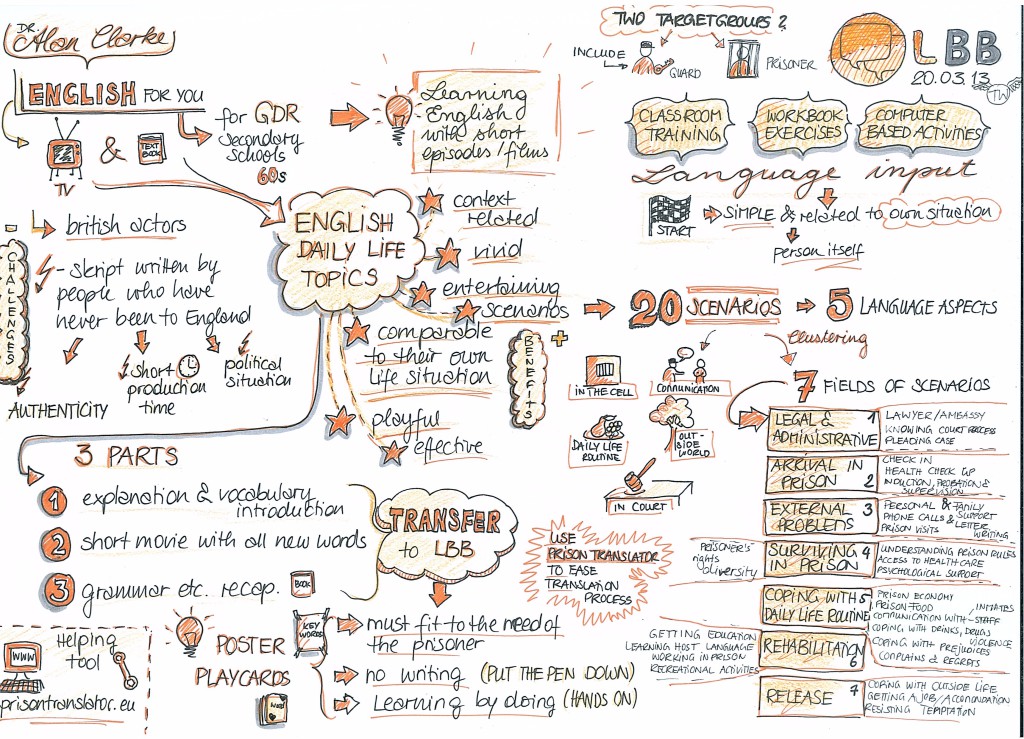 DR. Alan Clarke
ENGLISH FOR YOU
TV
&
TEXT BOOK
for GDR
secondary
schools
60s
Learning
English
with short
episodes/films
british actors
CHALLENGES
- skript written by
people who have
never been to England
AUTHENTICITY
short
production
time
political
situation
ENGLISH
DAILY LIFE
TOPICS
context
related
vivid
entertaining
scenarios
comparable
to their own
life situation
playful
effective
BENEFITS
+
3 PARTS
1 explanation & vocabulary
introduction
2 short movie with all new words
3 grammar etc. recap.
BOOK
TRANSFER
to LBB
Helping
tool
WWW
prisontranslator.eu
POSTER
KEY WORDS
PLAYCARDS
WORD
must fit to the need of
the prisoner
no writing (PUT THE PEN DOWN)
Learning by doing (HANDS ON)
TWO TARGETGROUPS?
INCLUDE
GUARD
PRISONER
LBB
20.03.13
TW
CLASSROOM
TRAINING
WORKBOOK
EXERCISES
COMPUTER
BASED ACTIVITIES
Language input
START
SIMPLE & related to own situation
person itself
20 SCENARIOS
5 LANGUAGE ASPECTS
clustering
IN THE CELL
COMMUNICATION
DAILY LIFE
ROUTINE
OUT-
SIDE
WORLD
IN COURT
USE
PRISON TRANSLATOR
TO EASE
TRANSLATION
PROCESS
7 FIELDS OF SCENARIOS
LEGAL & 1
ADMINISTRATIVE
LAWYER/AMBASSY
KNOWING COURT PROCESS
PLEADING CASE
ARRIVAL IN
PRISON 2
CHECK IN
HEALTH CHECK UP
INDUCTION, PROBATION &
SUPERVISION
EXTERNAL 3
PROBLEMS
PERSONAL & FAMILY
PHONE CALLS & SUPPORT
PRISON VISITS LETTER
WRITING
PRISONER'S
rights
diversity
SURVIVING 4
IN PRISON
UNDERSTANDING PRISON RULES
ACCESS TO HEALTH CARE
PSYCHOLOGICAL SUPPORT
COPING WITH 5
DAILY LIFE ROUTINE
PRISON ECONOMY
PRISON FOOD
COMMUNICATION WITH - STAFF, INMATES
COPING WITH DRINKS, DRUGS
VIOLENCE
COPING WITH PREJUDICES
COMPLAINS & REGRETS
GETTING EDUCATION
LEARNING HOST LANGUAGE
WORKING IN PRISON
RECREATIONAL ACTIVITIES
REHABILITATION
6
RELEASE 7
COPING WITH OUTSIDE LIFE
GETTING A JOB/ACCOMONDATION
RESISTING TEMPTATION